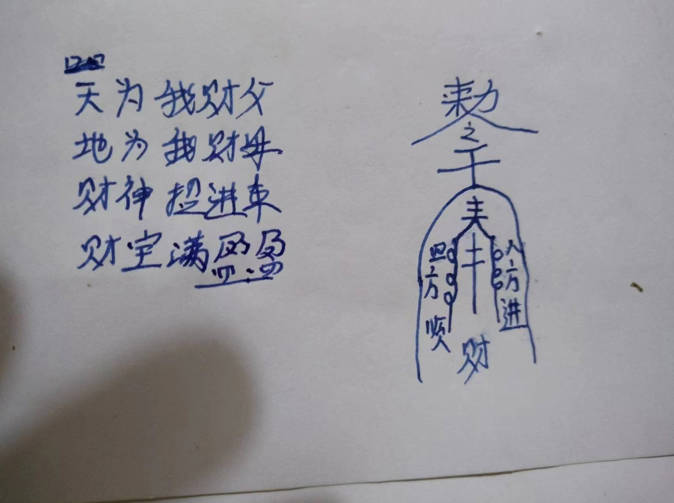 天为我财父
地为我财母
财神招进来
财宝满盈盈
敕
之
四方贤
八方进
财